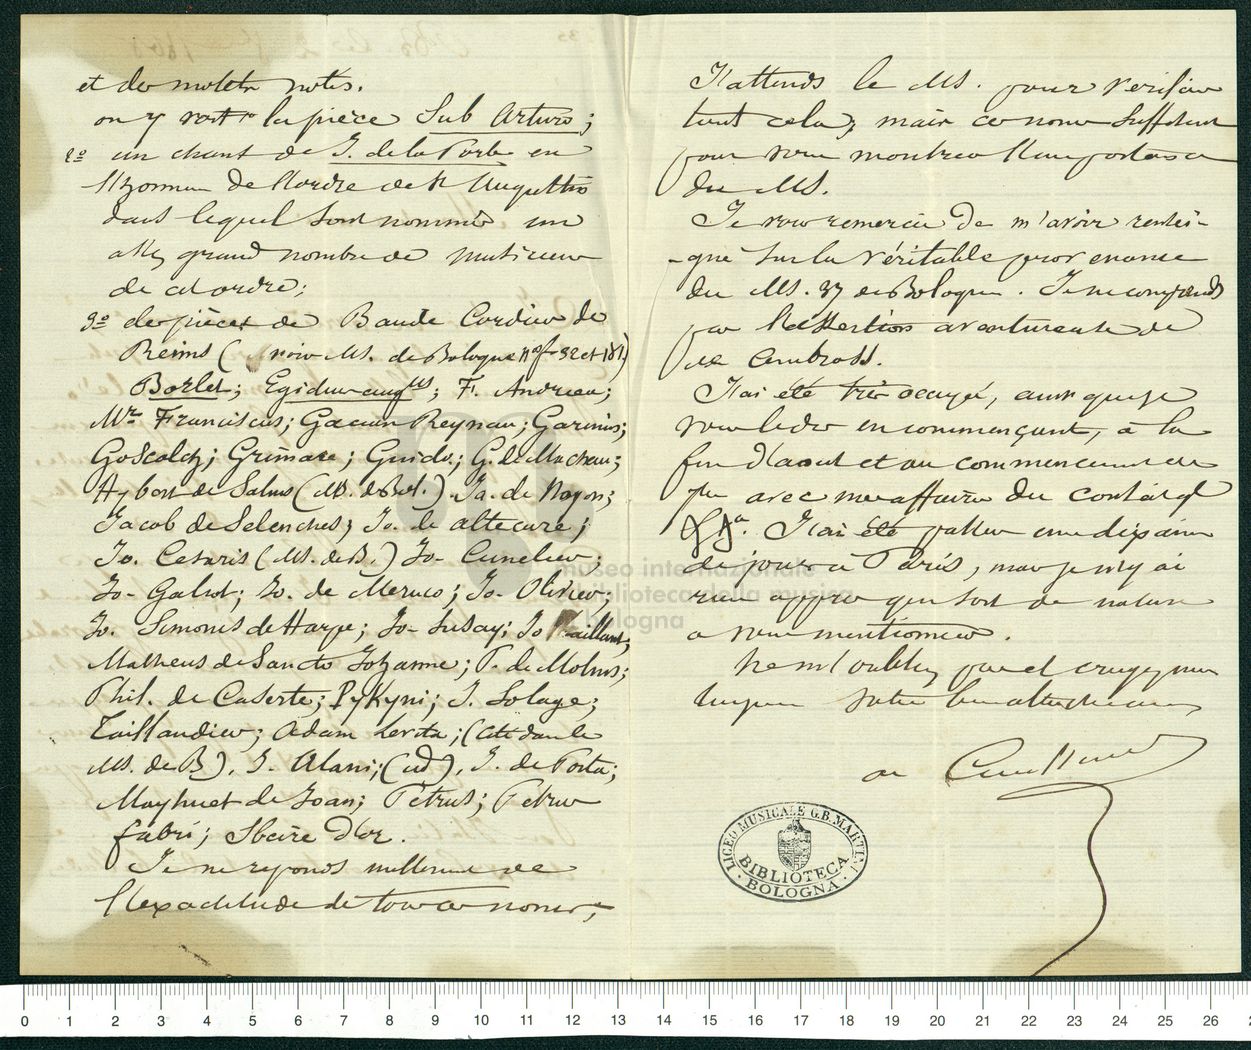 et des motets notés.
on y voit la pièce Sub Arturo;
2º un chant de J. de la Porte en
l'honneur de l'ordre de St Augustin
dans lequel sont nommés un
assez grand nombre de musiciens
de cet ordre;
3º des pièces de Baude Cordier de
Reims (  MS. de Bologne nos 32 et 181)
Borlet; Egidius augus; F. Andrieu;
Mre Franciscus; Gacian Reynau; Garinus;
Goscalch; Grimace; Guido; G. de Machau;
Hybort de Salins (MS. de Bol.). Ja. de Noyon;
Jacob de Selenches; Jo. de altecure;
Jo. Cesaris (MS. de B.) Jo- Cunelier;
Jo- Galiot; Jo. de Meruco; Jo- Olivier;
Jo. Simonis de Harpe; Jo- Susay; Jo Vaillant;
Matheus de Sancto Johanne; P. de Molins;
Phil. de Caserte; Pykyni; J. Solage;
Taillandier; Adam Levita; (cité dans le
MS. de B), J. Alani; (id), J. de Porta;
Mayhuet de Joan; Petrus; Petrus
fabri; Sbaire d'or.
Je ne réponds nullement de
l'exactitude de tous ces noms;
J'attends le MS. pour vérifier
tout cela; mais ces noms suffisent
pour vous montrer l'importance
du MS.
Je vous remercie de m'avoir rensei-
-gné sur la véritable provenance
du MS. 37 de Bologne. Je ne comprends
pas l'assertion aventureuse de
de Ambros.
J'ai été très occupé, ainsi que je
vous le dis en commençant, à la
fin d'aout et au commencement de
7bre avec mes affaires du
J'ai été passer une dizaine
de jours à Paris, mais je n'y ai
rien appris qui soit de nature
a vous mentionner.
Ne m'oubliez pas et croyez moi
toujours votre bien affectionné
de Coussemaker
LICEO MUSICALE G.B. MARTINI
BIBLIOTECA
BOLOGNA
museo internazionale
e biblioteca della musica
bologna
0 1 2 3 4 5 6 7 8 9 10 11 12 13 14 15 16 17 18 19 20 21 22 23 24 25 26